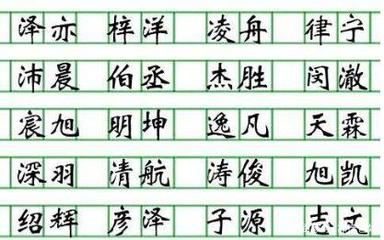 泽亦 梓洋 凌舟 律宁
沛晨 伯丞 杰胜 闵澈
宸旭 明坤 逸凡 天霖
深羽 清航 涛俊 旭凯
绍辉 彦泽 子源 志文